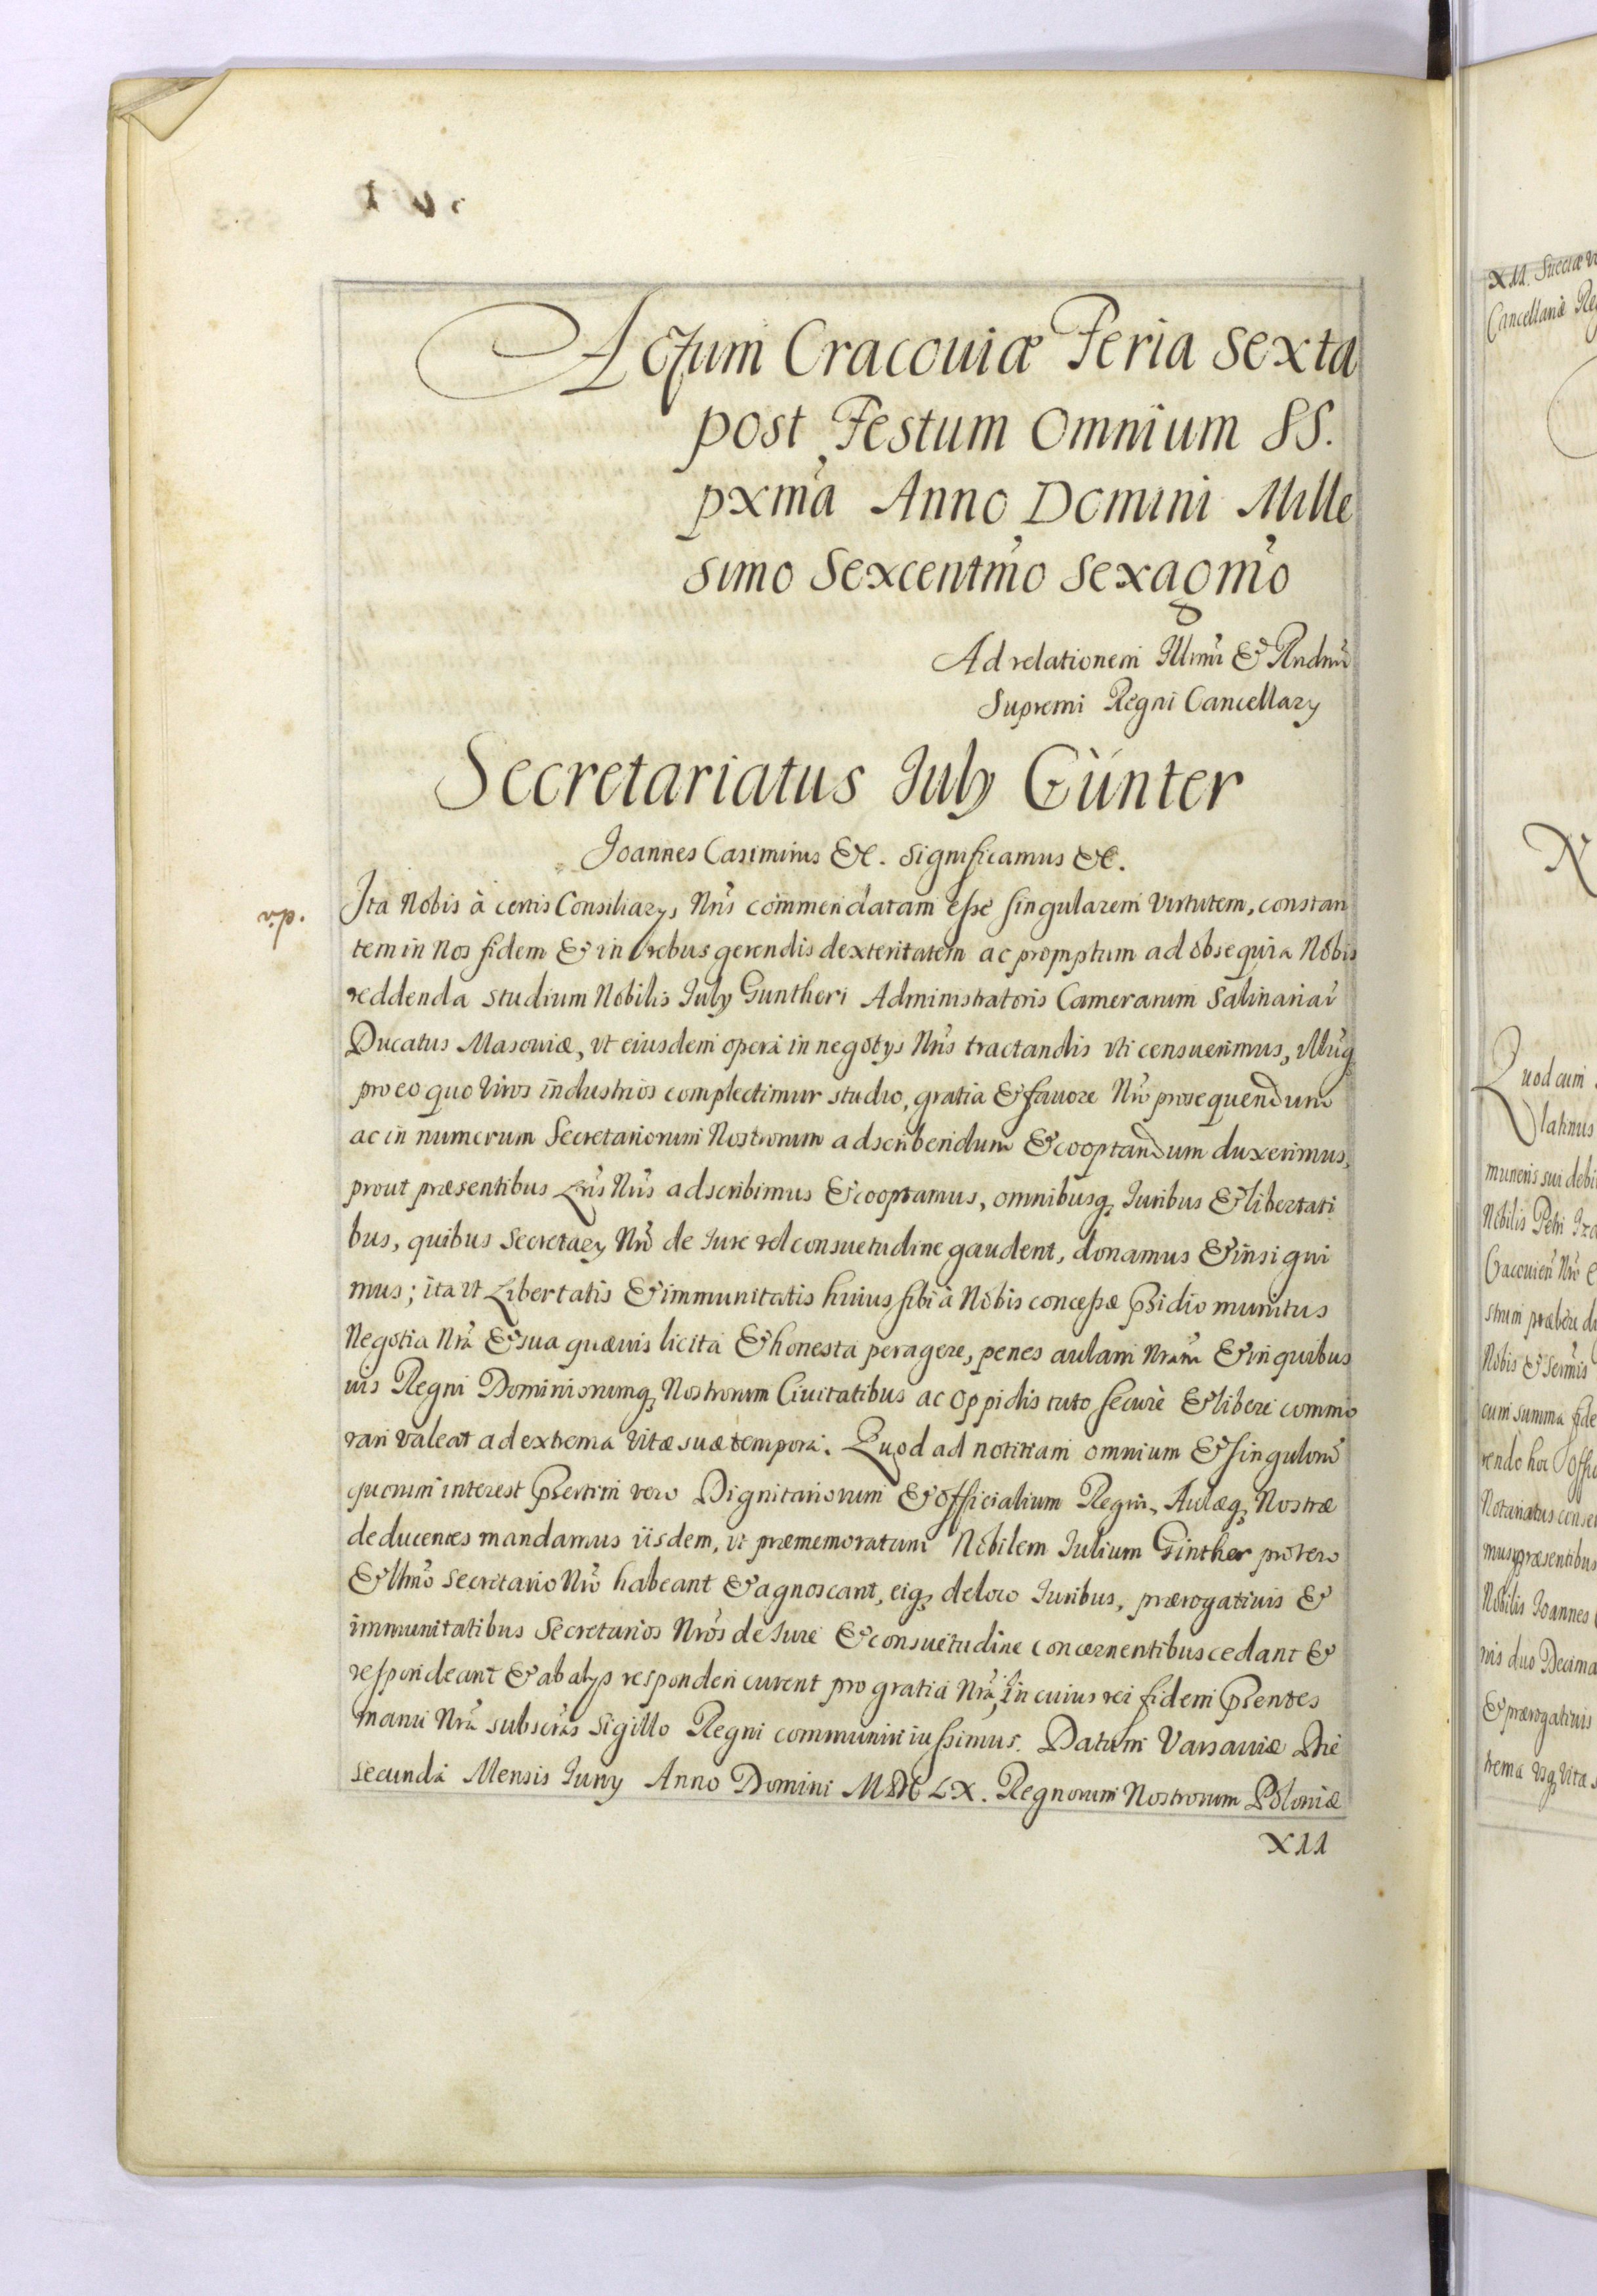 Actum Cracouiæ Feria Sexta
post Festum Omnium SS.
pxmã Anno Domini Mille
simo Sexcentmo Sexagmo
Ad relationem Illmi & Rndmi
Supremi Regni Cancellary
Secretariatus July Günter
Joannes Casimirus &c. Significamus &c.
v.p.
Ita Nobis à certis Consiliarys Nris commendatam esse singularem virtutem, constan
tem in Nos fidem & in rebus gerendis dexteritatem ac promptum ad obsequia Nobis
reddenda studium Nobilis July Guntheri Administratoris Camerarum Salinariar
Ducatus Masouiæ, vt eiusdem operâ in negotys Nris tractandis vti censuerimus, illuq
pro eo quo viros industrios complectimur studio, gratia & fauore Nro prosequendum
ac in numerum Secretariorum Nostrorum adscribendum & cooptandum duxerimus,
prout præsentibus Lris Nris adscribimus & cooptamus, omnibusq Iuribus & libertati
bus, quibus Secretary Nri de Iure vel consuetudine gaudent, donamus & insigni
mus; ita vt Libertatis & immunitatis huius sibi à Nobis concessæ psidio munitus
Negotia Nra & sua quæuis licita & honesta peragere, penes aulam Nram & in quibus
uis Regni Dominiorumq Nostrorum Ciuitatibus ac Oppidis tuto secure & libere commo
rari valeat ad extrema vitæ suæ tempora. Quod ad notitiam omnium & singulorũ
quorum interest psertim vero Dignitariorum & Officialium Regni, Aulæq Nostræ
deducentes mandamus iisdem, vt præmemoratum Nobilem Iulium Ginther pro vero
& lltmo Secretario Nro habeant & agnoscant, eiq de loco Iuribus, prærogatiuis &
immunitatibus Secretarios Nros de Iure & consuetudine concernentibus cedant &
respondeant & ab alys responderi curent pro gratia Nra, In cuius rei fidem psentes
manu Nra subscras Sigillo Regni communiri iussimus. Datum Varsauiæ Die
secunda Mensis Iuny Anno Domini MDCLX. Regnorum Nostrorum Poloniæ
XII
XII. Sueciæ
Cancellariæ
N
Quod cum
muneris sui
Nobilis Petri
Cracouien Nro
præbere
Nobis &
cum summa fide
rendo hoc
Notariatus
præsentibus
Nobilis Joannes
nis duo Decima
& prærogatiuis
trema vsq vitæ